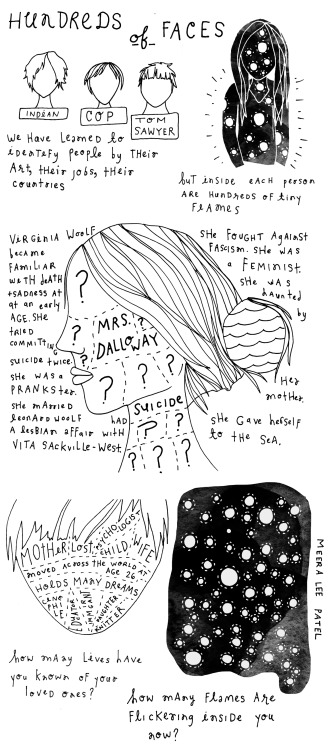 HUNDREDS of FACES
INDIAN
COP
TOM SAWYER
we have learned to
identify people by their
Art, their jobs, their
countries
but inside each person
are hundreds of tiny
flames
Virginia Woolf
became
familiar
with death
+ sadness at
at an early
age. She
tried
committing
suicide twice.
She was a
prankster.
She married
Leonard Woolf
had
a lesbian affair with
Vita Sackville-West.
?
?
MRS. ?
DALLOWAY
? ? ?
SUICIDE
? ?
? ? ?
She fought against
fascism. She was
a feminist.
She was
haunted
by
Her
mother.
She gave herself
to the sea.
PSYCHOLOGIST
MOTHER LOST CHILD WIFE
moved across the world at
age 26
HOLDS MANY DREAMS
EDUCATOR
IMMIGRANT
DAUGHTER
KNITTER
how many lives have
you known of your
loved ones?
how many flames are
flickering inside you
now?
MEERA LEE PATEL